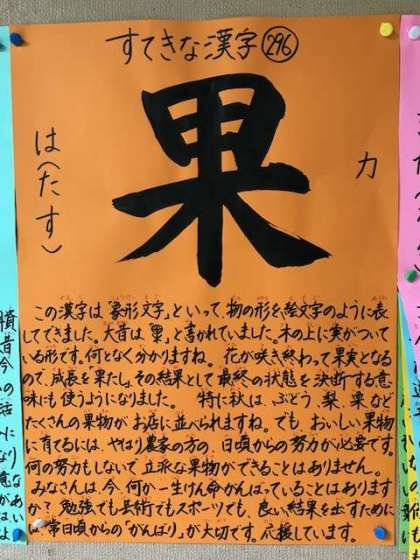 すてきな漢字296
果
カ
は(たす)
この漢字は「象形文字」といって、物の形を絵文字のように表
してできました。大昔は「」と書かれていました。木の上に実がついて
いる形です。何となく分かりますね。 花が咲き終わって果実となる
ので、成長を果たし、その結果として最終の状態を決断する意
味にも使うようになりました。 特に秋は、ぶどう、梨、栗など
たくさんの果物がお店に並べられますね。でも、おいしい果物
に育てるには、やはり農家の方の、日頃からの努力が必要です。
何の努力もしないで立派な果物ができることはありません。
みなさんは、今、何か一生けん命がんばっていることはあります
か? 勉強でも芸術でもスポーツでも、良い結果を出すために
は常日頃からの「がんばり」が大切です。応援しています。